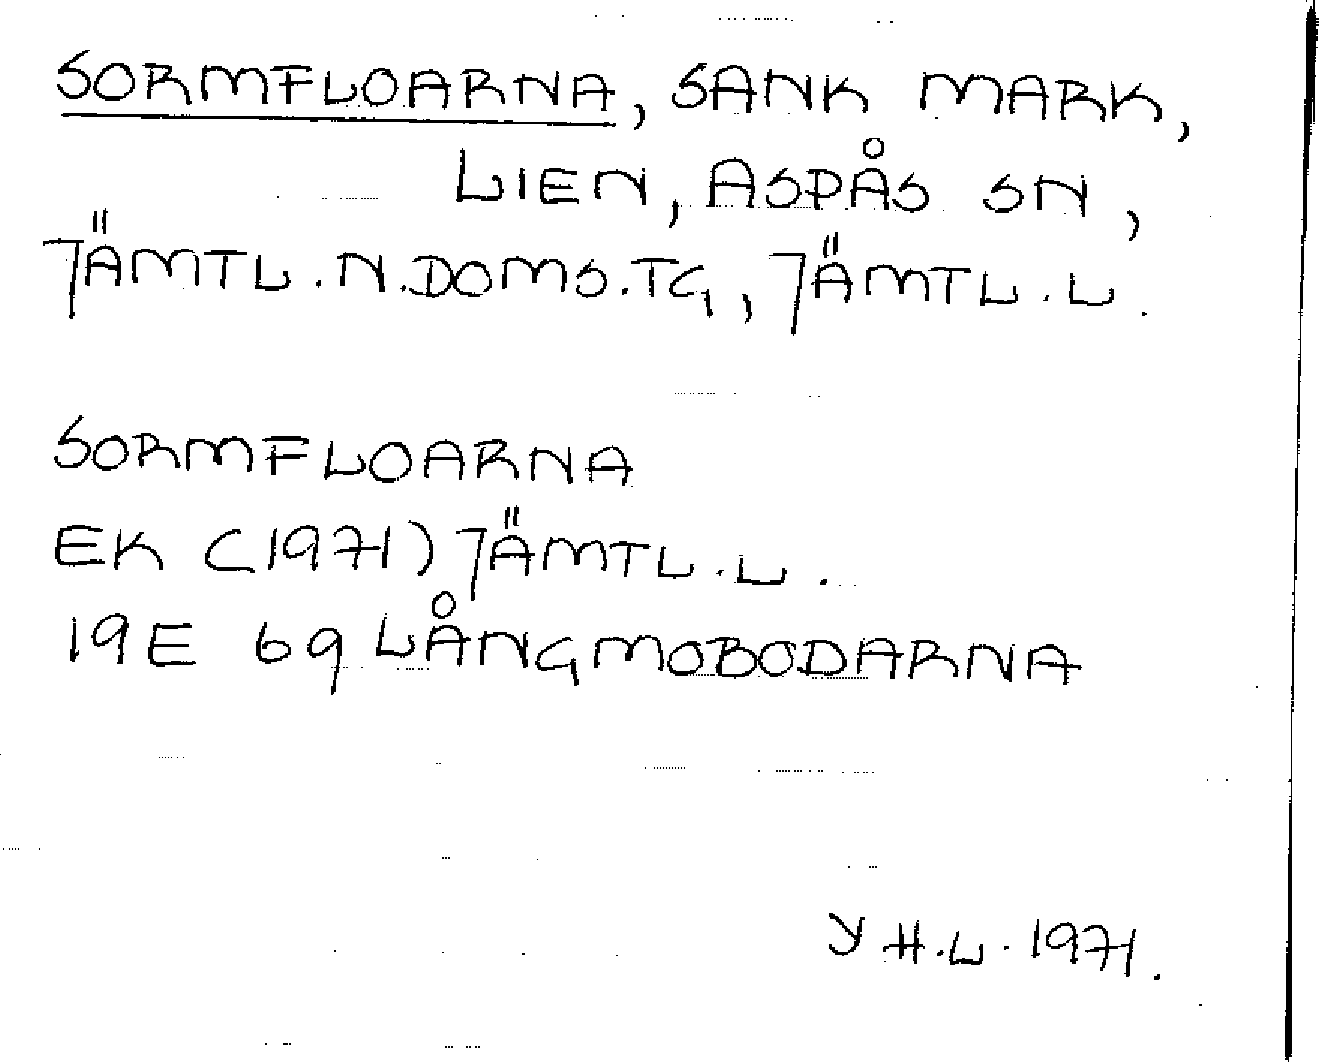 SORMFLOARNA, SANK MARK,
LIEN, ASPÅS SN,
JÄMTL.N.DOMS.TG, JÄMTL.L.
SORMFLOARNA
EK (1971) JÄMTL.L.
19E 69 LÅNGMOBODARNA
Y H.L. 1971.